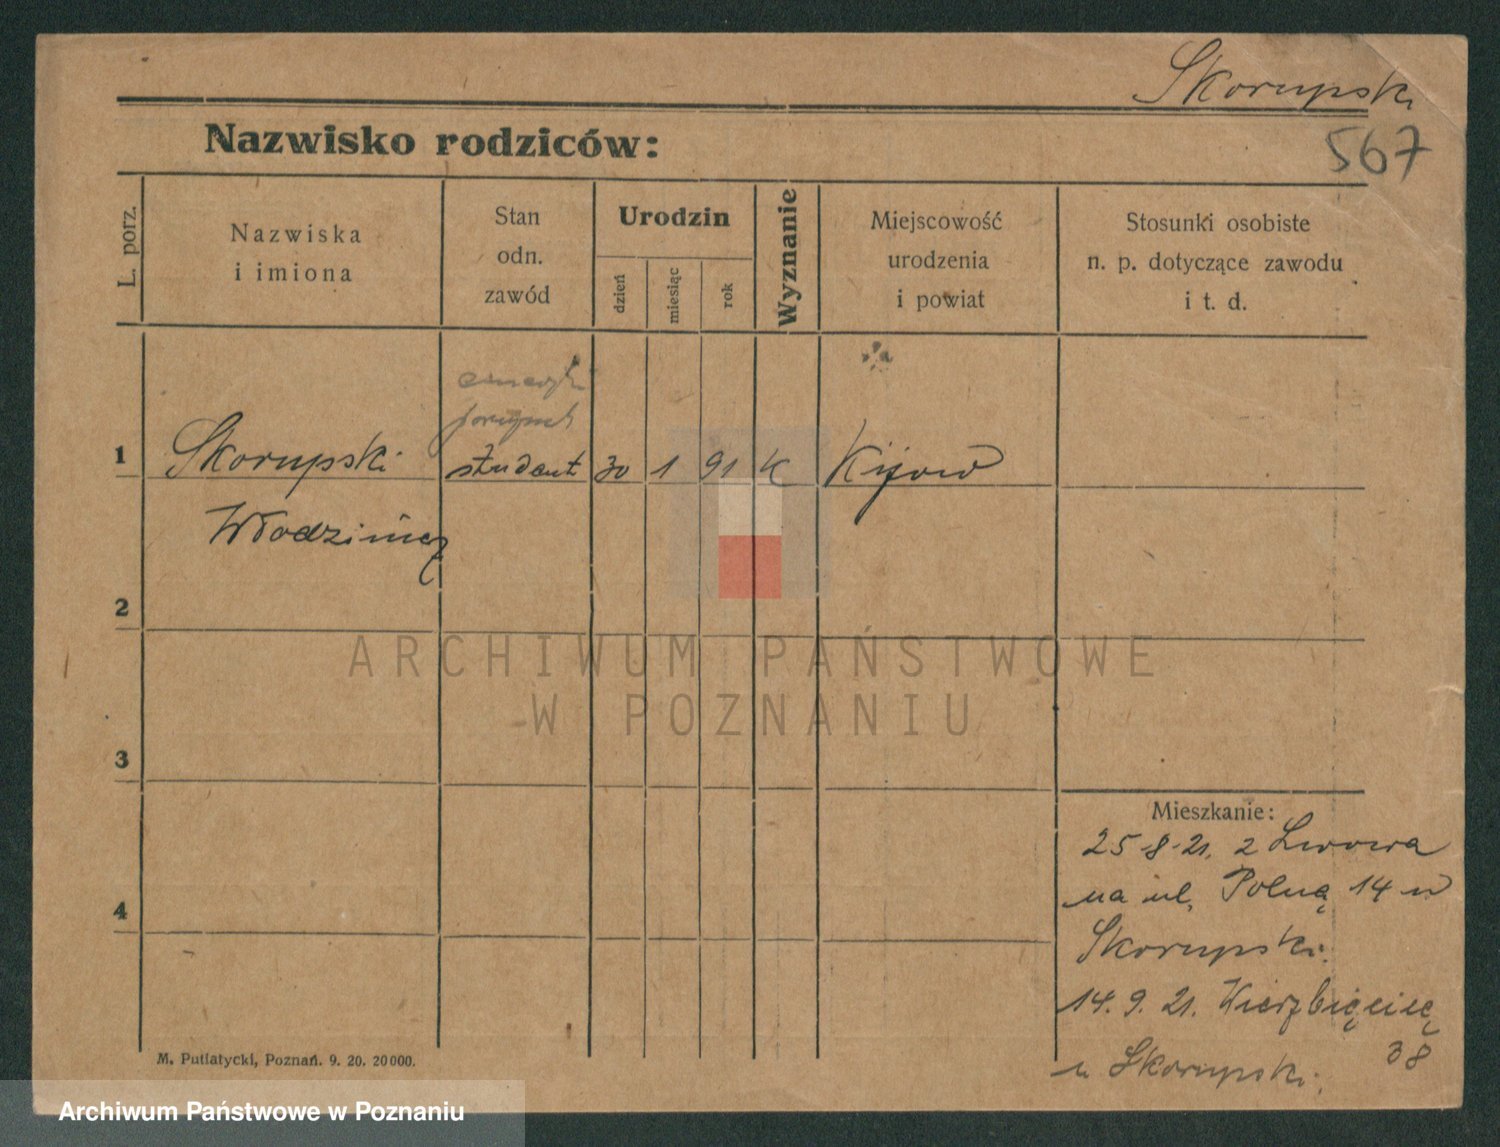 Skorupski
567
Nazwisko rodziców:
L. porz.
Nazwiska
i imiona
Stan
odn.
zawód
Urodzin
dzień
miesiąc
rok
Wyznanie
Miejscowość
urodzenia
i powiat
Stosunki osobiste
n. p. dotyczące zawodu
i t. d.
1
Skorupski
student
30
1
91
K
Kijow
Włodzimierz
2
ARCHIWUM PAŃSTWOWE
W POZNANIU
3
Mieszkanie:
25-8-21. z Lwowa
na ul. Polną 14 u
4
Skorupski.
14. 9. 21. Wierzbięcicę
38
u Skorupski.
M. Putiatycki, Poznań. 9. 20. 20000.
Archiwum Państwowe w Poznaniu